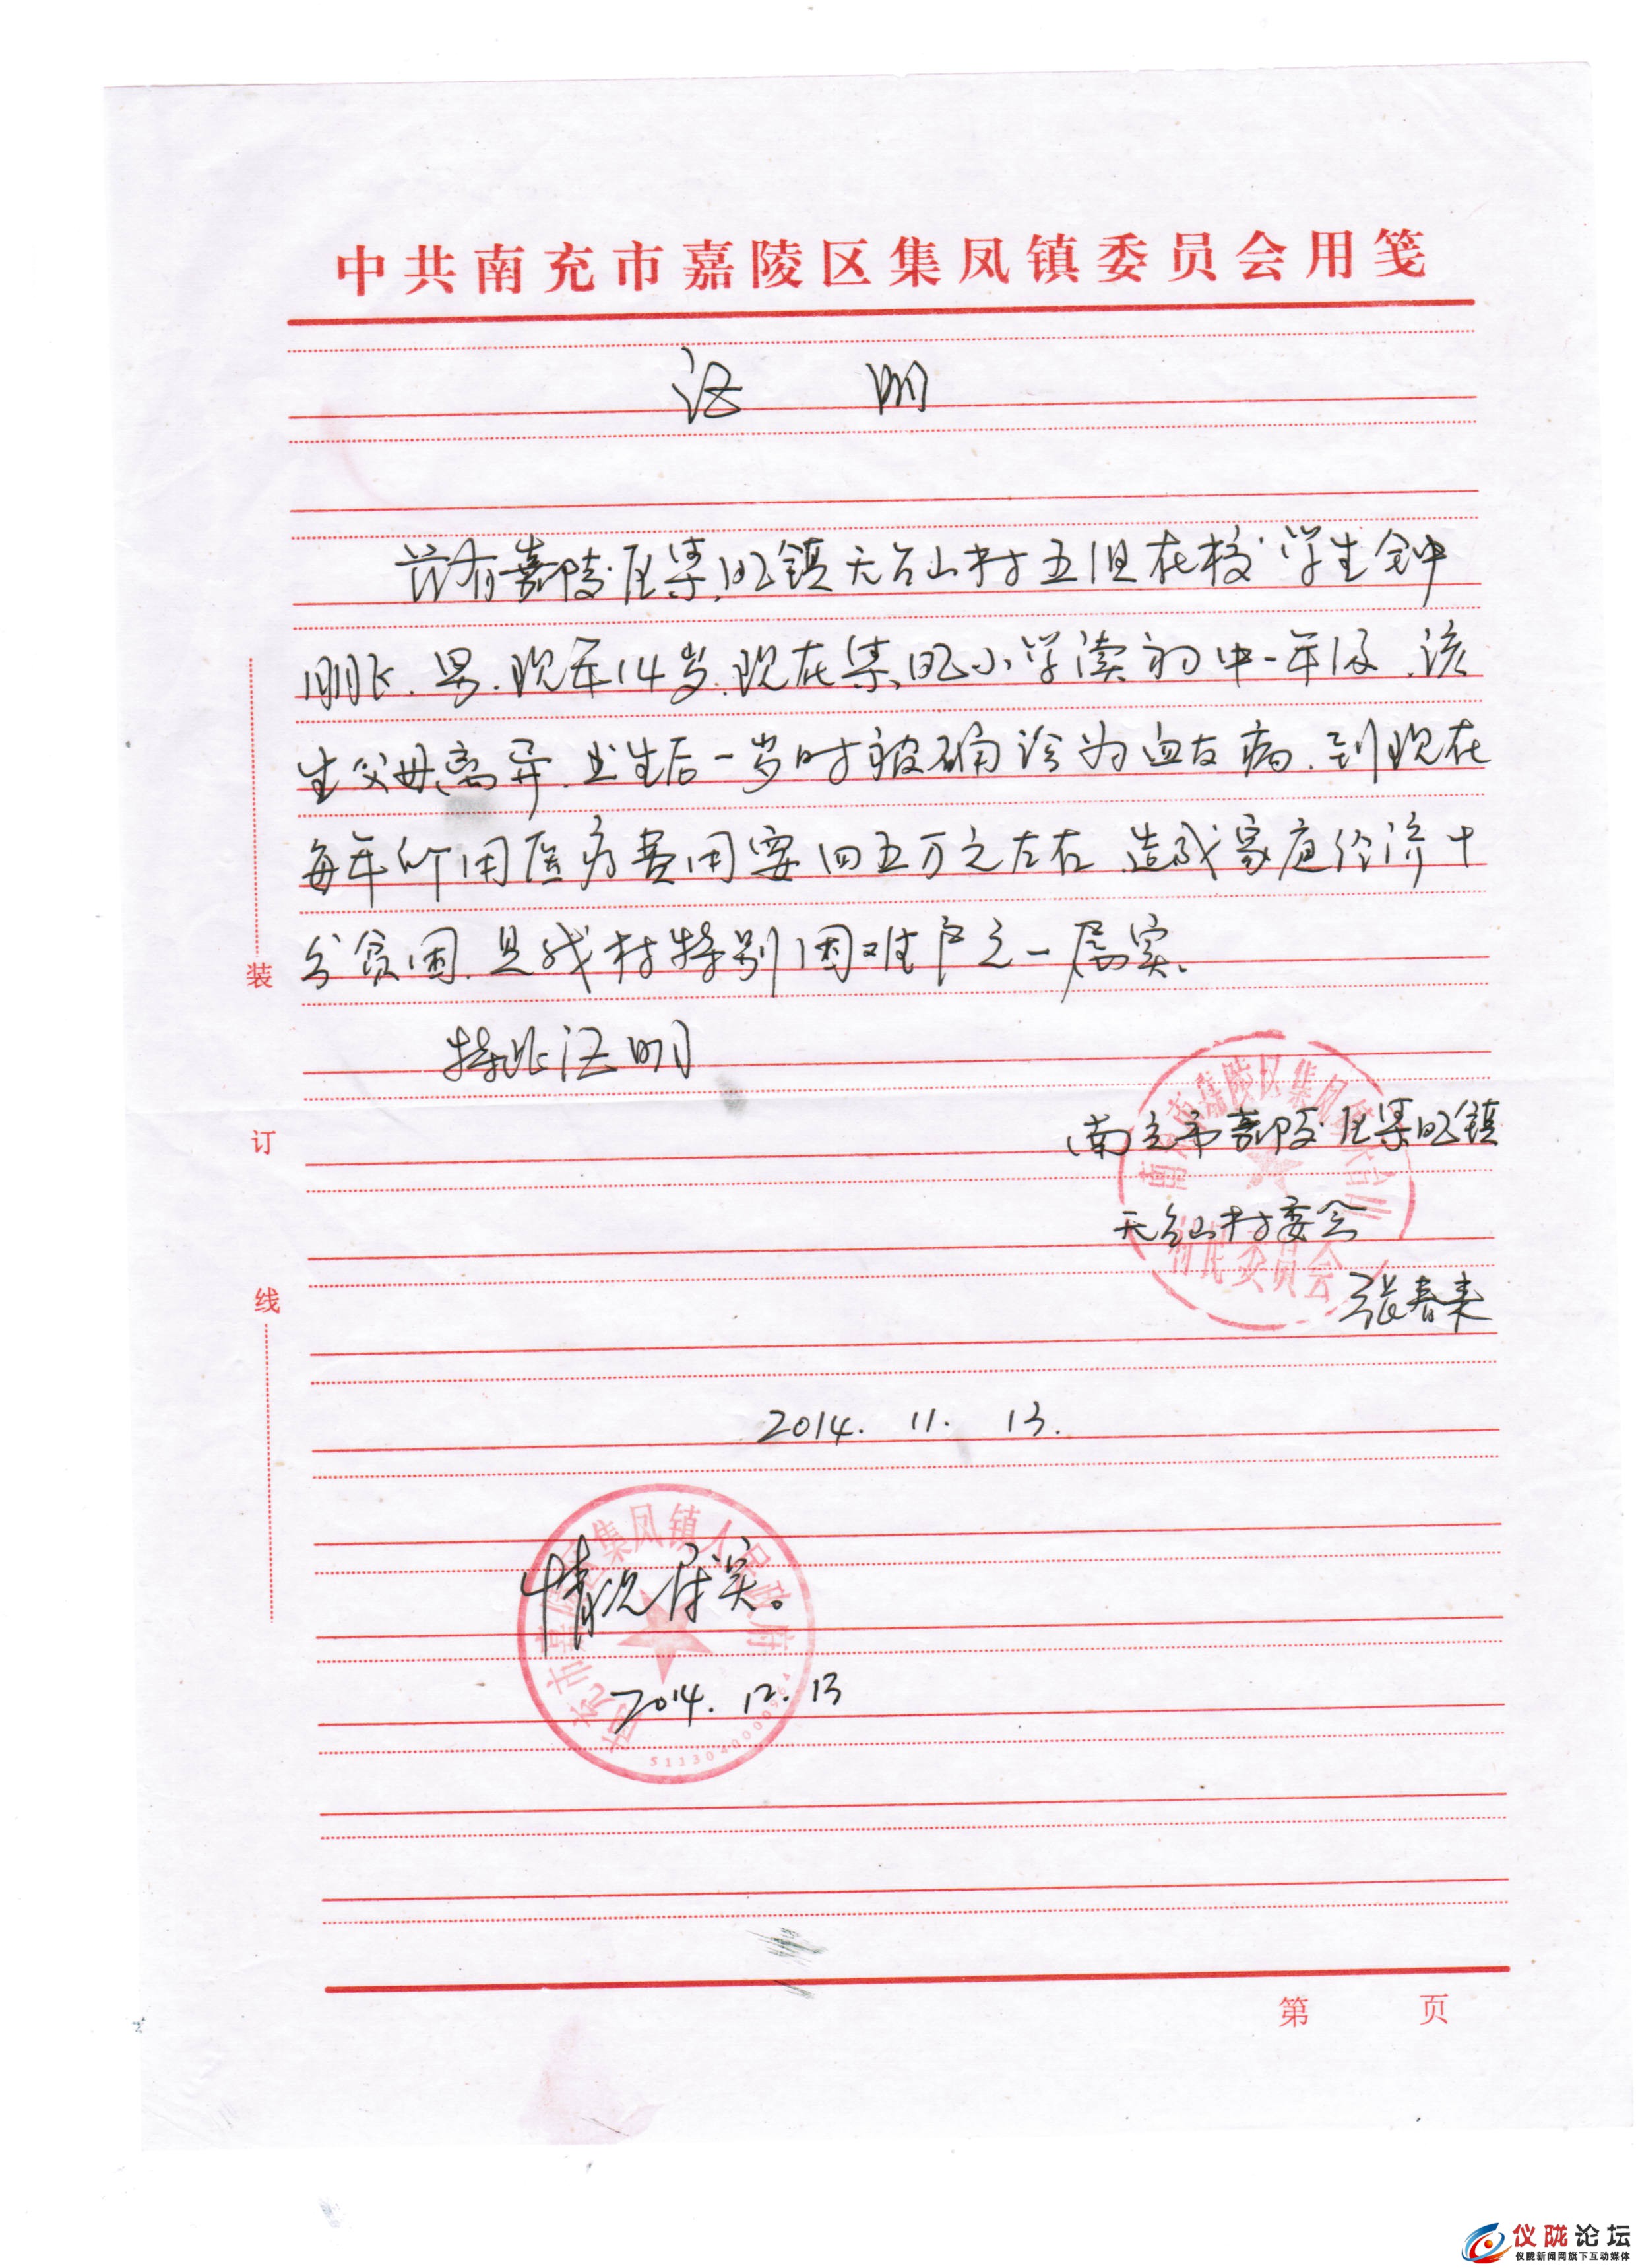 中共南充市嘉陵区集凤镇委员会用笺
证 明
兹有嘉陵区集凤镇天台山村五组在校学生钟
刚 男.现年14岁.现在集凤小学读初中一年级.该
生父母离异.出生后一岁时被确诊为血友病.到现在
每年所用医疗费用要四五万元左右.造成家庭经济十
分贫困.是我村特别困难户之一属实.
特此证明
南充市嘉陵区集凤镇
天台山村委会
张春来
2014. 11. 13.
情况属实。
2014. 12. 13
南充市嘉陵区集凤镇天台山
村民委员会
南充市嘉陵区集凤镇人民政府
装
订
线
第 页
仪陇论坛
仪陇新闻网旗下互动媒体